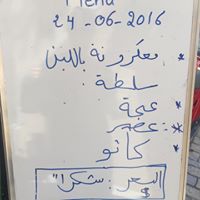 Menu
24-06-2016
* معكرونة باللبن
سلطة
* عجة
* عصير
* كاتو
السعر: شكرا"
$